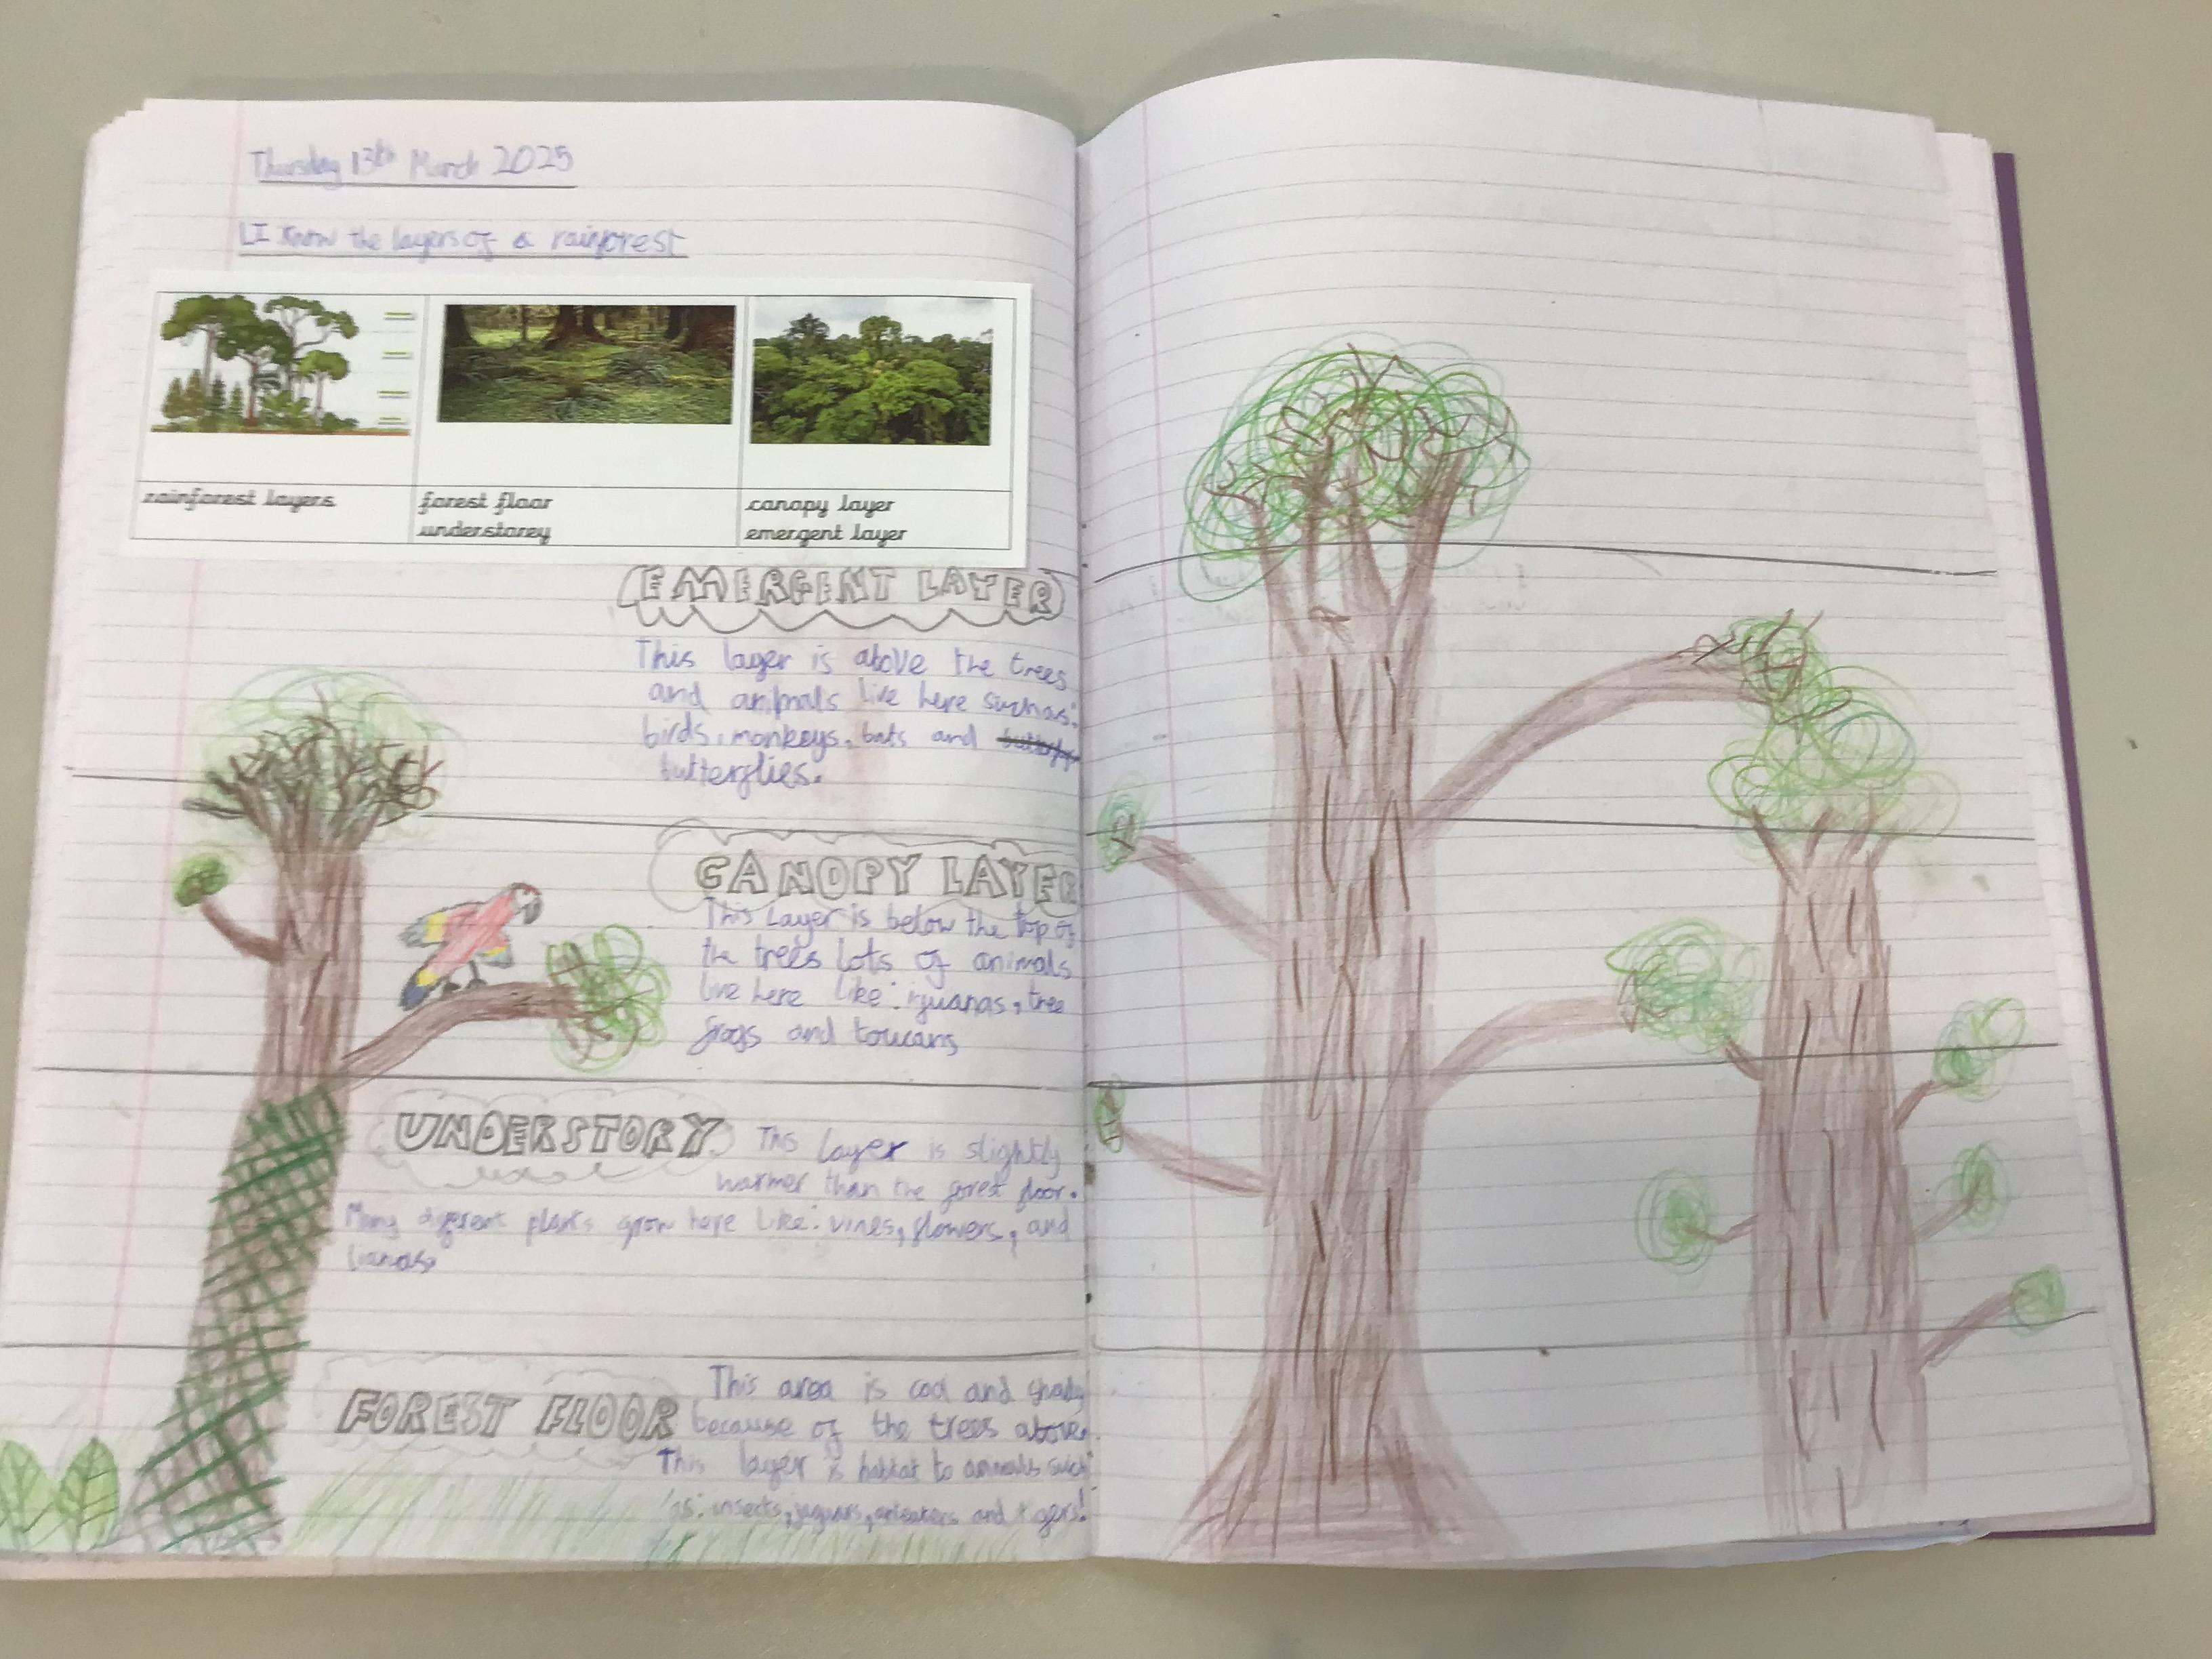 Thursday 13th March 2025
LI Know the layers of a rainforest
rainforest layers
forest floor
understorey
canopy layer
emergent layer
EMERGENT LAYER
This layer is above the trees
and animals live here such as:
birds, monkeys, bats and
butterflies.
CANOPY LAYER
This Layer is below the top of
the trees lots of animals
live here like: iguanas, tree
frogs and toucans
UNDERSTORY
This layer is slightly
warmer than the forest floor.
Many different plants grow here like: vines, flowers, and
lianas.
FOREST FLOOR
This area is cool and shady
because of the trees above.
This layer is habitat to animals such
as: insects, jaguars, anteaters and tigers!